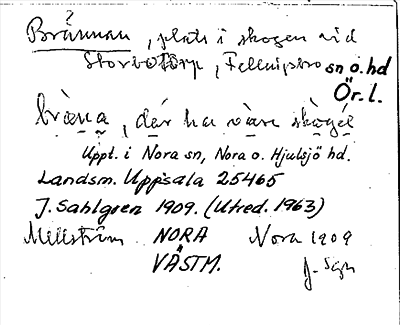 Brännan, plats i skogen vid
Storbotorp, Fellingsbro sn o. hd
Ör. l.
bräna, där ha väre skögel
Uppt. i Nora sn, Nora o. Hjulsjö hd.
Landsm. Uppsala 25465
J. Sahlgren 1909. (Utred. 1963)
Mellström NORA Nora 1909
VÄSTM. J. Sgn